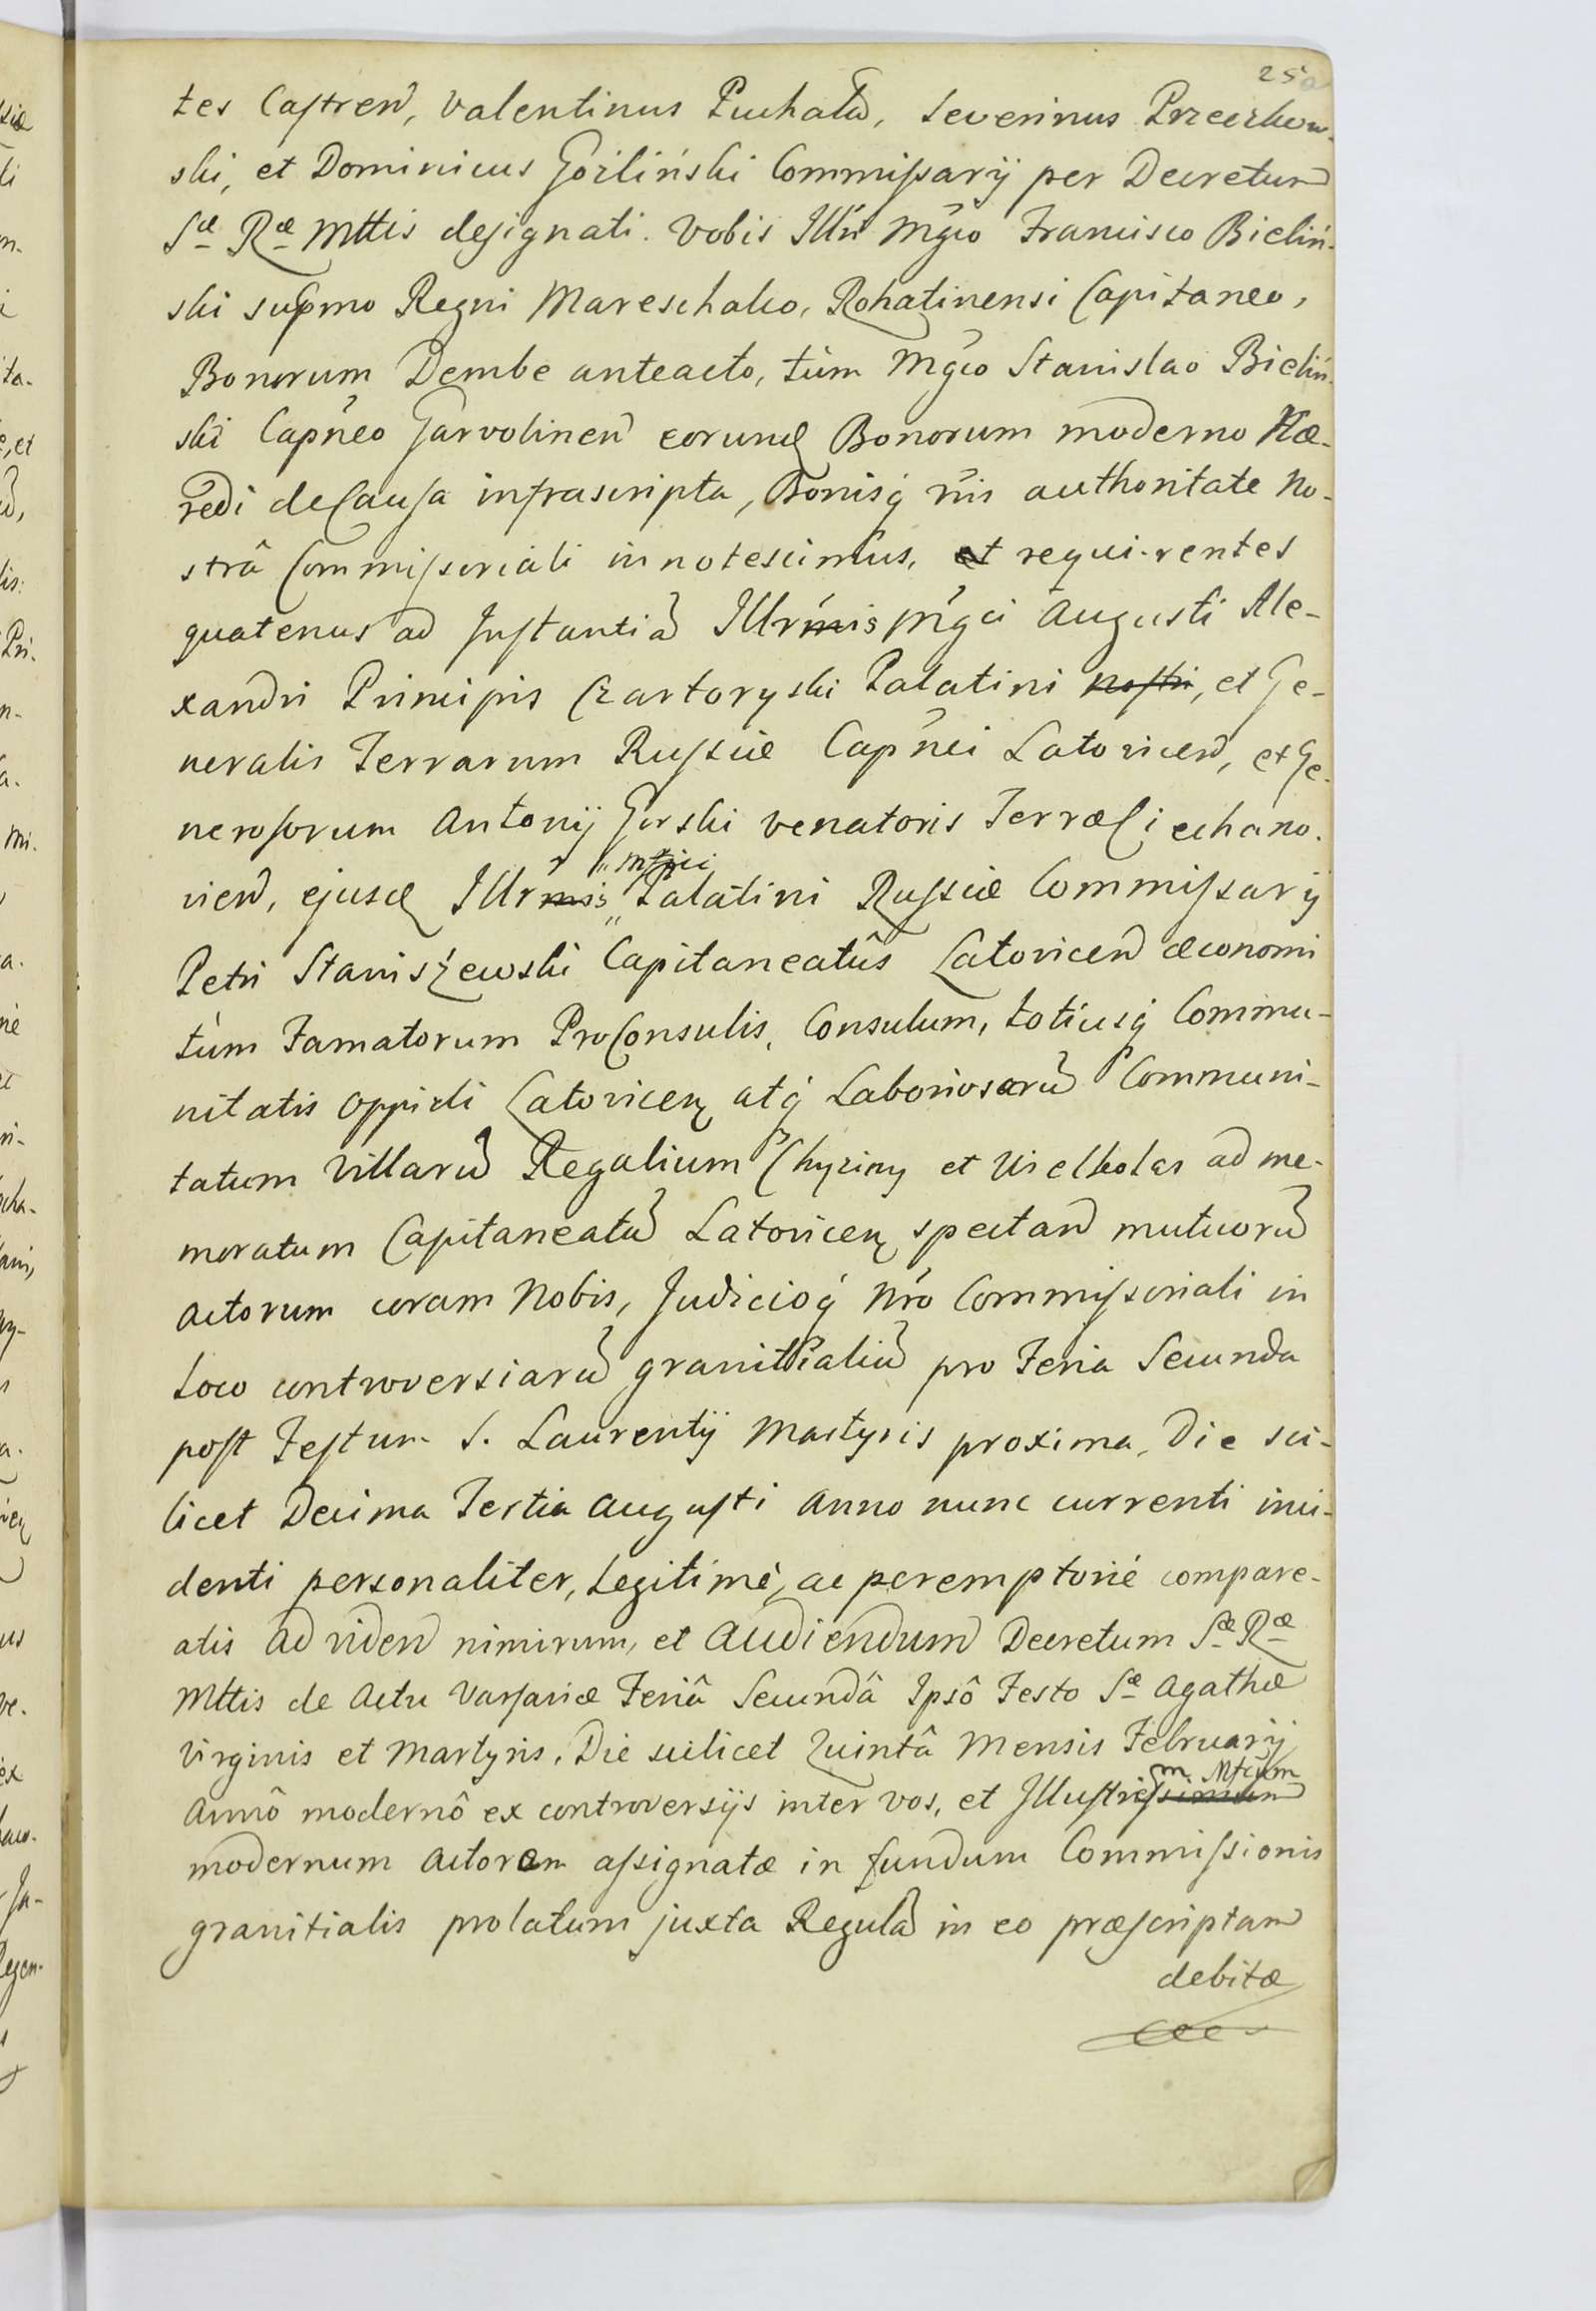 250
tes Castren, Valentinus Puchała, Severinus Przeczkow-
ski, et Dominicus Goźliński Commissarij per Decretum
Sæ Ræ Mttis designati. Vobis Illri Mgco Francisco Bieliń-
ski supmo Regni Mareschalco, Rohatinensi Capitaneo,
Bonorum Dembe anteacto, tùm Mgco Stanislao Bieliń-
ski Capneo Garvolinen eorund Bonorum moderno Hæ-
redi de Causa infrascripta, Bonisq́ rris authoritate no-
strâ Commissoriali innotescimus, et requi-rentes
quatenus ad Instantiã Illrmis Mgci Augusti Ale-
xandri Principis Czartoryski Palatini nostri, et Ge-
neralis Terrarum Russiæ Capnei Latovicen, et Ge-
nerosorum Antonij Gorski Venatoris Terræ Ciechano-
vien, ejusd Illrmis Mfici Palatini Russiæ Commissarij
Petri Staniszewski Capitaneatûs Latovicen œconomi
tùm Famatorum ProConsulis, Consulum, totiusq́ Commu-
nitatis Oppidi Latovicen atq́ Laboriosarũ Communi-
tatum Villarũ Regalium Chyżiny et Wielholas ad me-
moratum Capitaneatũ Latovicen spectan mutuorũ
Actorum coram Nobis, Judicioq́ Nro Commissoriali in
Loco controversiarũ granitialiũ pro Feria Secunda
post Festum S. Laurentij Martyris proxima, Die sci-
licet Decima Tertia Augusti Anno nunc currenti inci-
denti personaliter, Legitimè, ac peremptoriè compare-
atis ad viden nimirum, et Audiendum Decretum Sæ Ræ
Mttis de Actu Varsaviæ Feriâ Secundâ Ipsô Festo Sæ Agathæ
Virginis et Martyris, Die scilicet Quintâ Mensis Februarij
Annô modernô ex controversijs inter vos, et Illustrissimum m Mfcum
modernum Actorem assignatæ in fundum Commissionis
granitialis prolatum juxta Regulã in eo præscriptam
debitæ